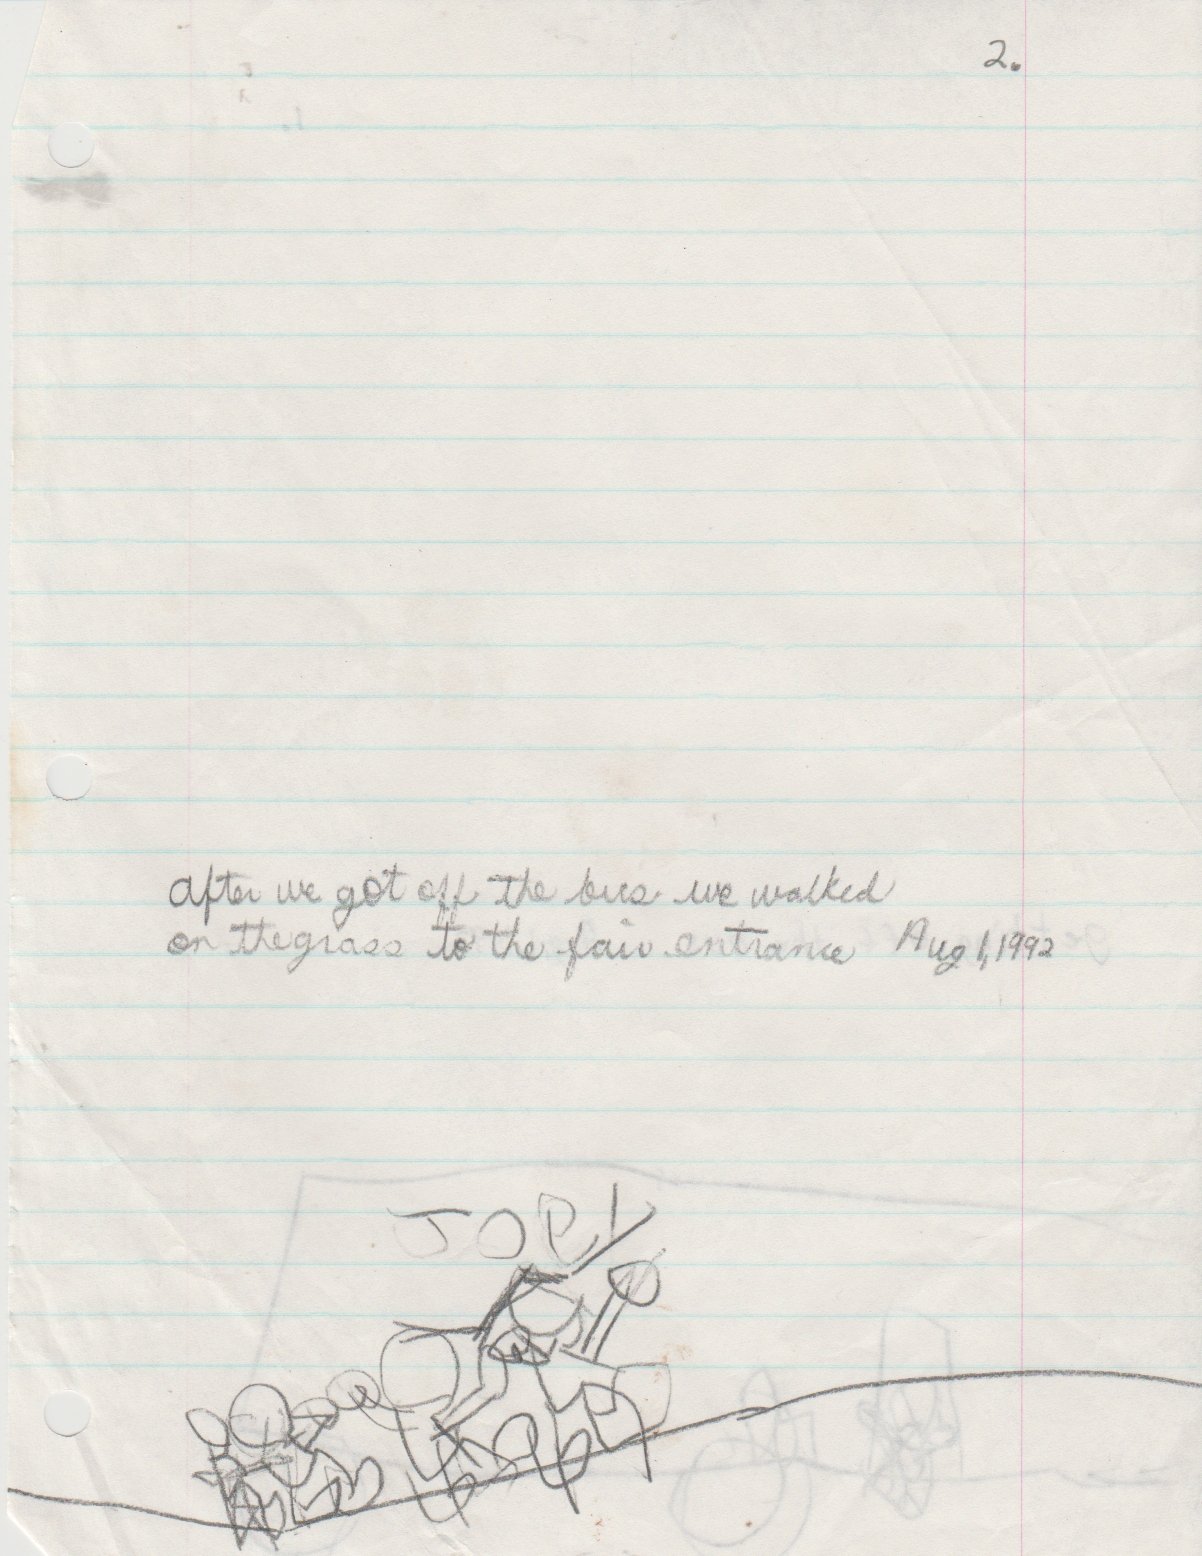 2.
after we got off the bus we walked
on the grass to the fair entrance Aug 1, 1992
JOEY